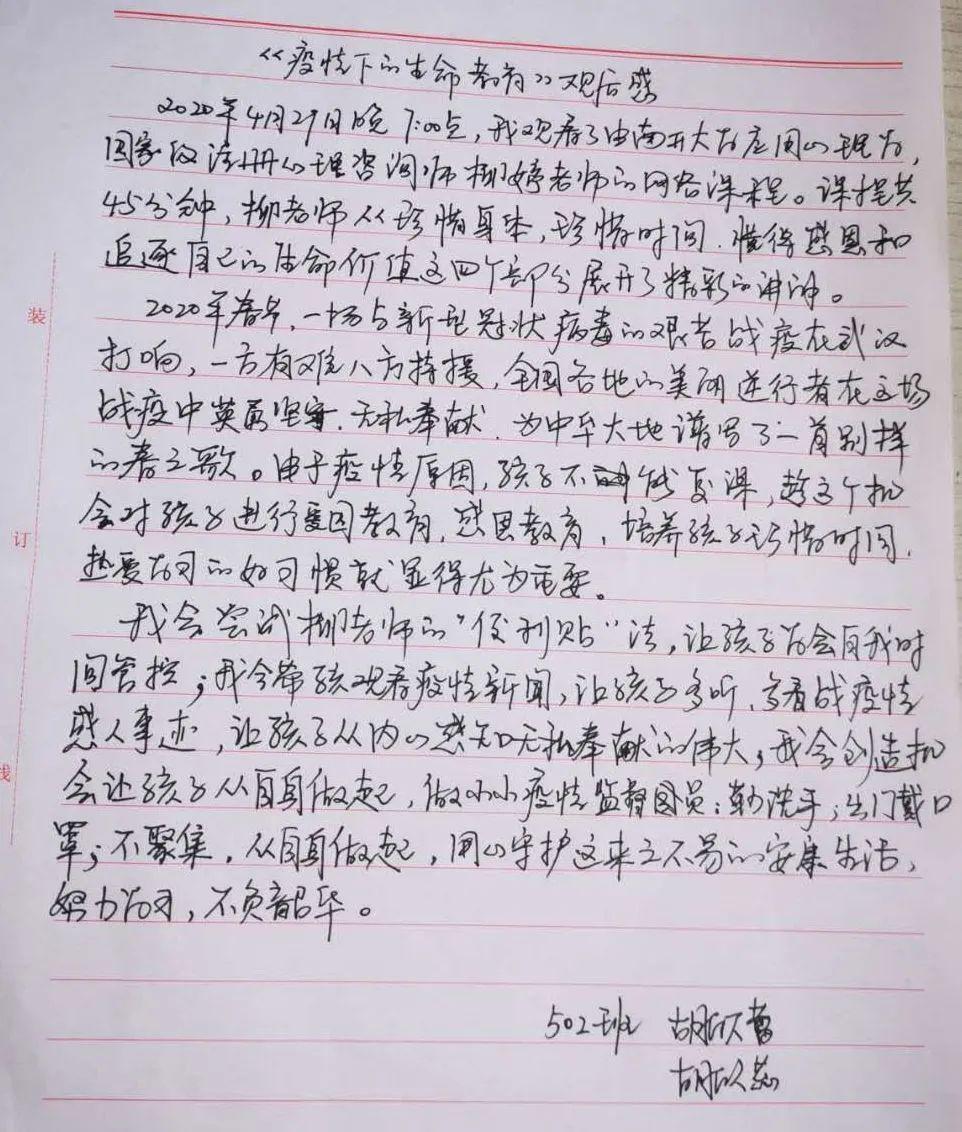 《疫情下的生命教育》观后感
2020年4月29日晚7:00点，我观看了由南开大学应用心理学，
国家级注册心理咨询师柳婷老师的网络课程。课程共
45分钟，柳老师从珍惜身体，珍惜时间、懂得感恩和
追逐自己的生命价值这四个部分展开了精彩的讲演。
2020年春节，一场与新型冠状病毒的艰苦战疫在武汉
装
打响，一方有难八方持援，全国各地的美丽逆行者在这场
战疫中英勇坚守、无私奉献、为中华大地谱写了一首别样
的春之歌。由于疫情原因，孩子不能复课，趁这个机
会对孩子进行爱国教育，感恩教育，培养孩子珍惜时间，
订
热爱学习的好习惯就显得尤为重要。
我会尝试柳老师的“便利贴”法，让孩子学会自我时
间管控；我会带孩观看疫情新闻，让孩子多听、多看战疫情
感人事迹，让孩子从内心感知无私奉献的伟大；我会创造机
线
会让孩子从自身做起，做小小疫情监督员：勤洗手；出门戴口
罩；不聚集，从自身做起，用心守护这来之不易的安康生活，
努力学习，不负韶华。
502班 胡欣
胡